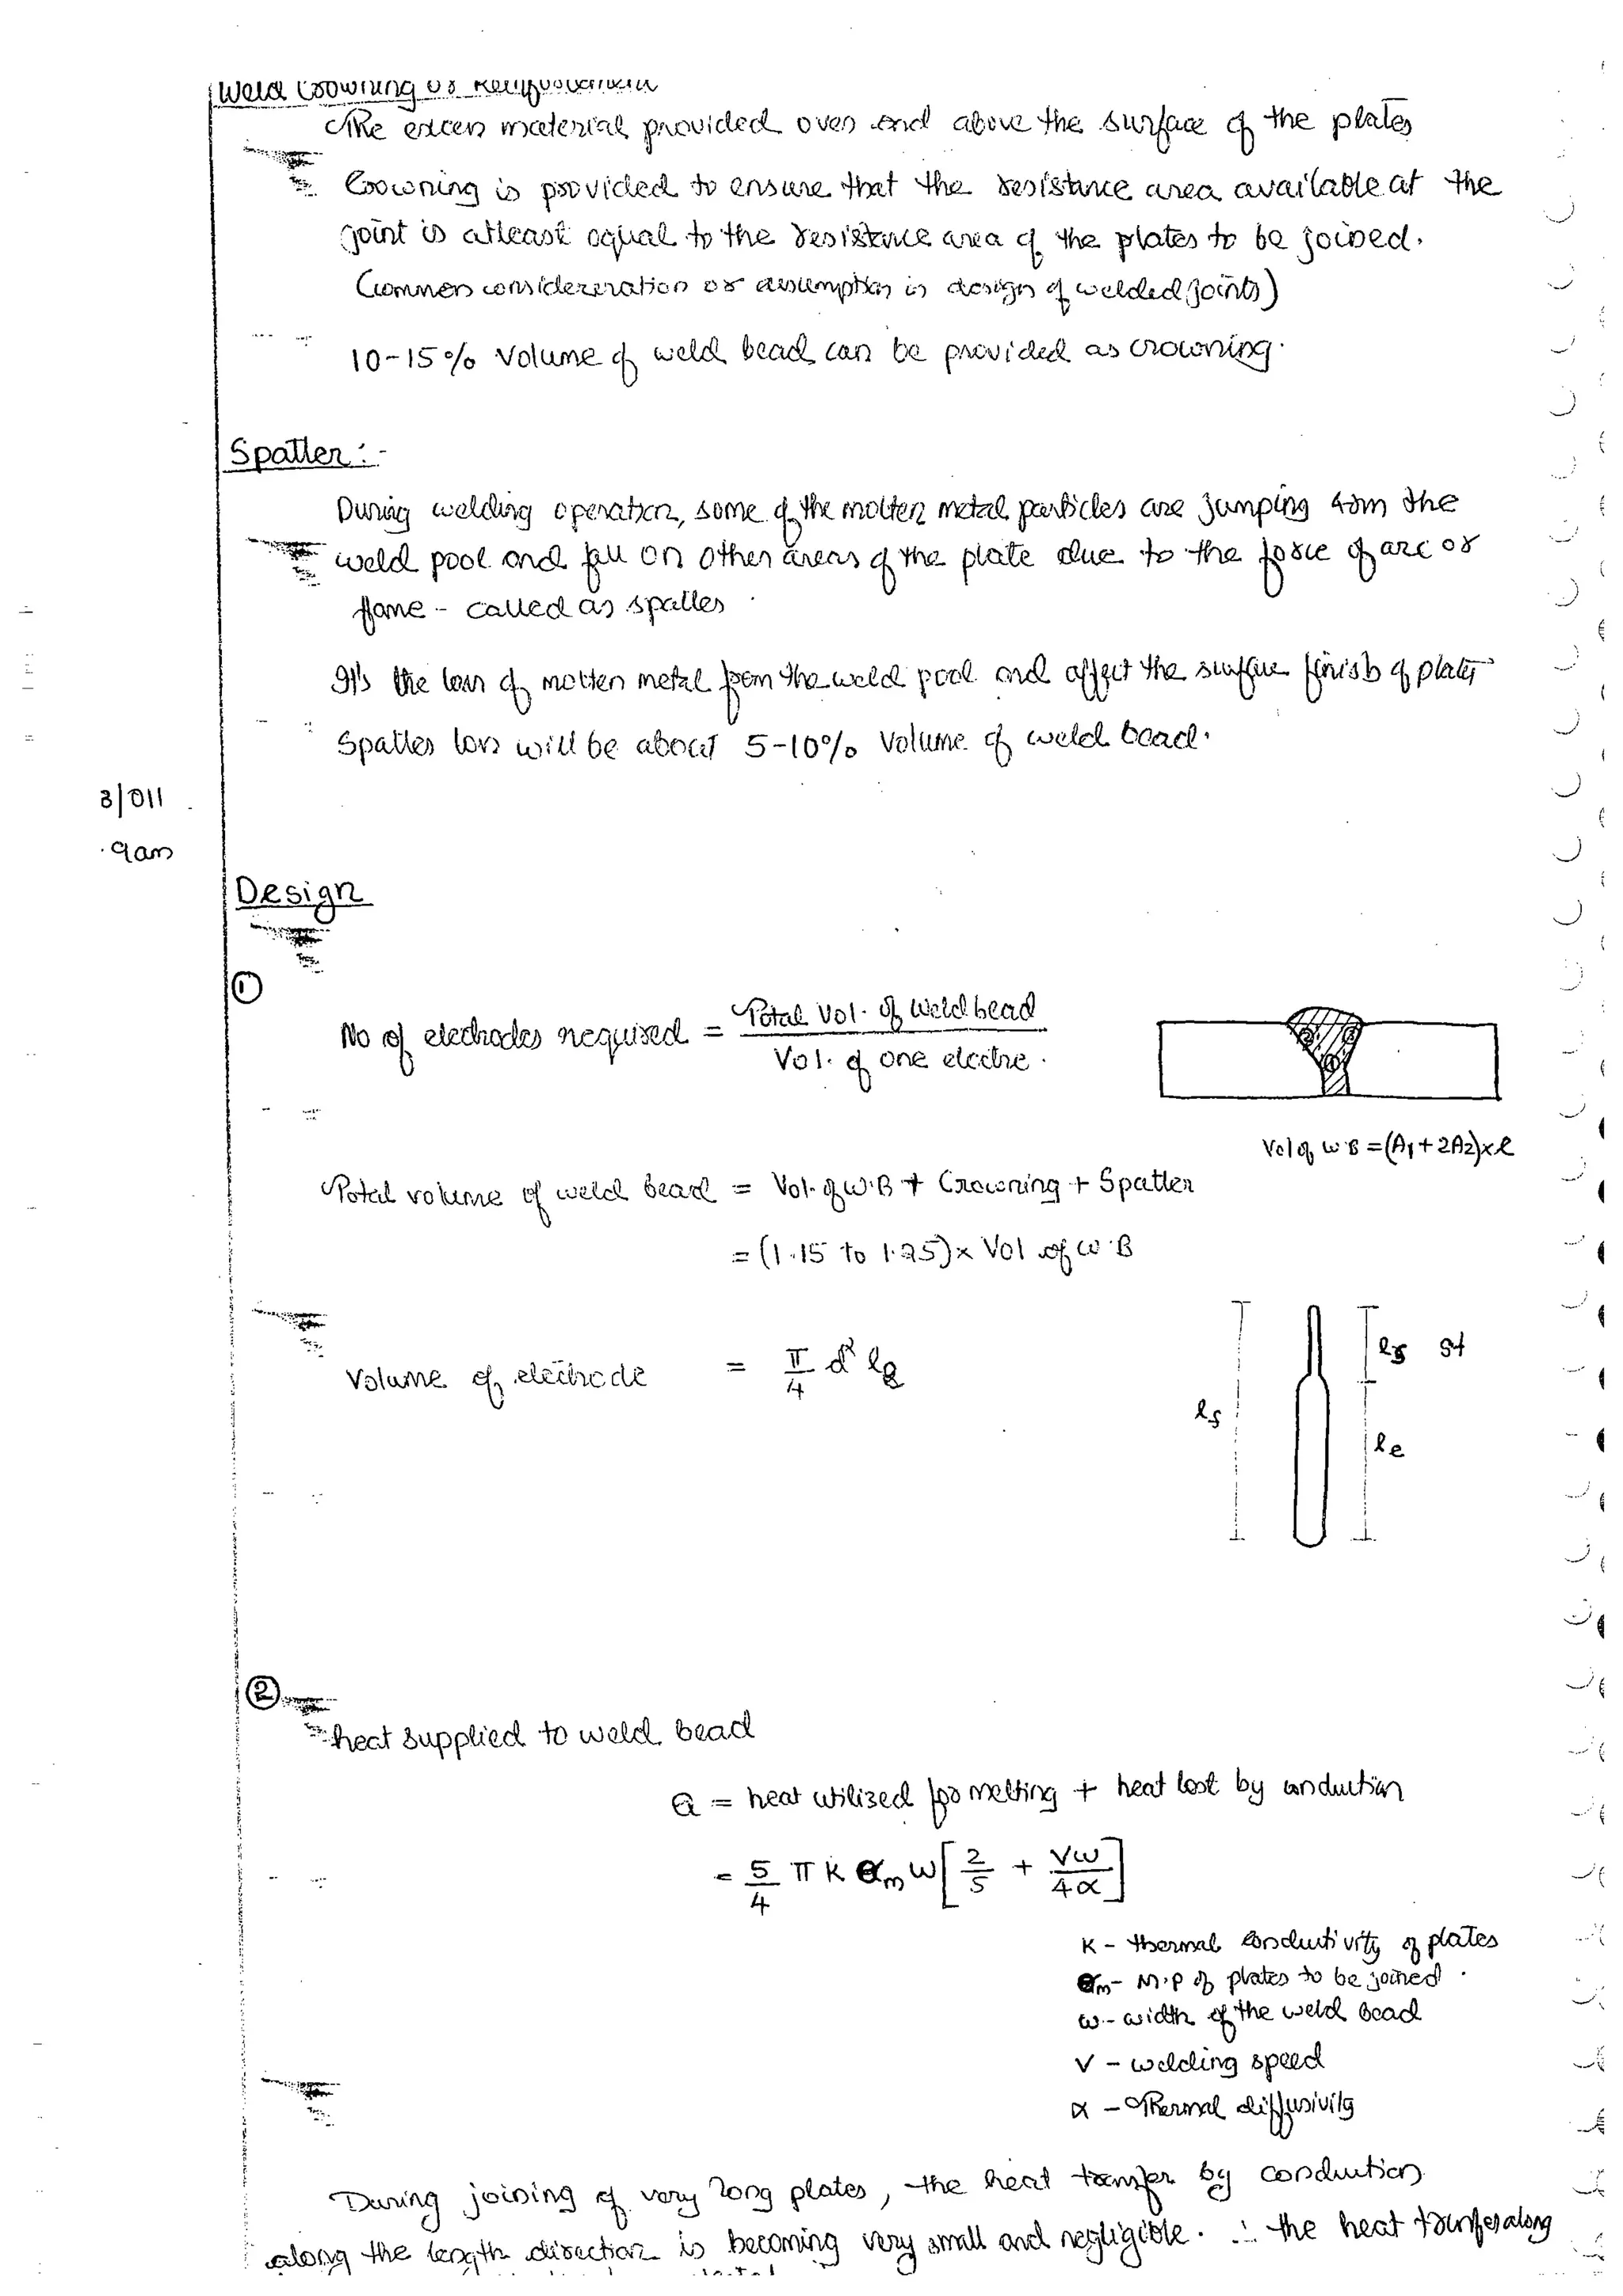 Weld Crowning or Reinforcement
The excess material provided over and above the surface of the plates
Crowning is provided to ensure that the resistance area available at the
joint is atleast equal to the resistance area of the plates to be joined.
(common considereration or assumption in design of welded joints)
10-15% Volume of weld bead can be provided as crowning.
Spatter:-
During welding operation, some of the molten metal particles are jumping from the
weld pool and fall on other areas of the plate due to the force of arc or
flame - called as spatter
It's the loss of molten metal from the weld pool and affect the surface finish of plates
Spatter loss will be about 5-10% Volume of weld bead.
3/011
9am
Design
①
No of electrodes required = Total Vol. of Weld bead / Vol. of one electre.
② ① ②
Vol of W.B = (A1 + 2A2)×l
Total volume of weld bead = Vol. of W.B + Crowning + Spatter
= (1.15 to 1.25)× Vol of W.B
Volume of electrode = π/4 d² le
ls st
ls
le
②
heat supplied to weld bead
Q = heat utilised for melting + heat lost by conduction
= 5/4 π K θm W [2/5 + VW/4α]
K - thermal conductivity of plates
θm - M.P of plates to be joined.
w - width of the weld bead
V - welding speed
α - Thermal diffusivity
During joining of very long plates, the heat transfer by conduction
along the length direction is becoming very small and negligible. ∴ the heat transfer along